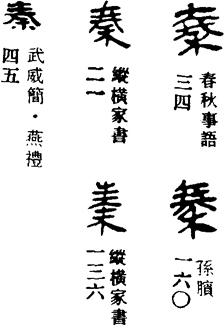 秦
春秋事語
三四
秦
孫臏
一六〇
秦
縱橫家書
二一
秦
縱橫家書
一三六
秦
武威簡・燕禮
四五